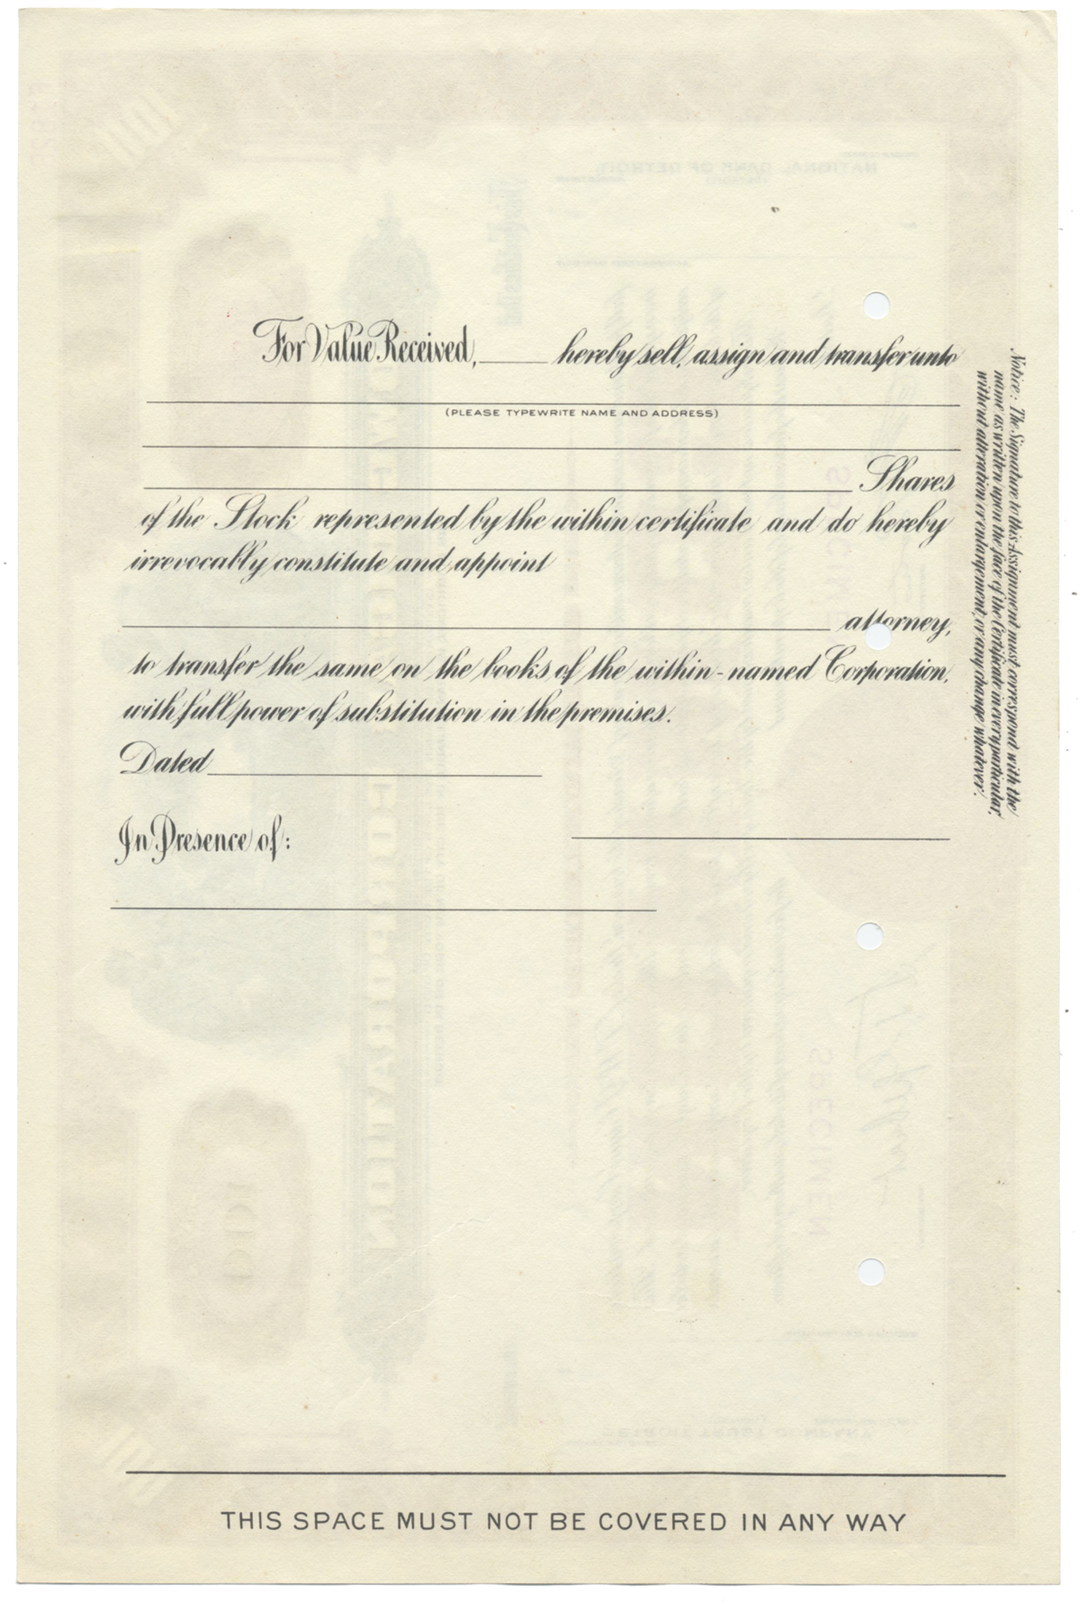 For Value Received, hereby sell, assign and transfer unto
(PLEASE TYPEWRITE NAME AND ADDRESS)
Shares
of the Stock represented by the within certificate and do hereby
irrevocably constitute and appoint
attorney,
to transfer the same on the books of the within-named Corporation,
with full power of substitution in the premises.
Dated
In Presence of:
Notice: The Signature to this Assignment must correspond with the
name as written upon the face of the Certificate in every particular,
without alteration or enlargement, or any change whatever.
NATIONAL BANK OF DETROIT
SPECIMEN
CORPORATION
DETROIT TRUST COMPANY
THIS SPACE MUST NOT BE COVERED IN ANY WAY